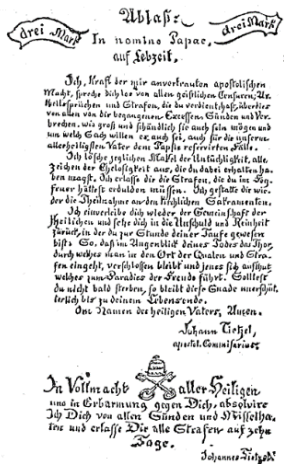 Ablaß:
drei Mark
drei Mark
In nomino Papae,
auf Lebzeit.
Ich, Kraft der mir anvertrauten apostolischen
Macht, spreche dich los von allen geistlichen Censuren, Ur-
theilssprüchen und Strafen, die du verdient hast; überdies
von allen von dir begangenen Excessen, Sünden und Ver-
brechen, wie groß und schändlich sie auch sein mögen und
um welch Sach willen es auch sei, auch für die unserm
allerheiligsten Vater dem Papste reservirten Fälle.
Ich lösche jeglichen Makel der Untüchtigkeit, alle
Zeichen der Ehrlosigkeit aus, die du dabei erhalten ha-
ben magst. Ich erlasse dir die Strafen, die du im Feg-
feuer hättest erdulden müssen. Ich gestatte dir wie-
der die Theilnahme an den kirchlichen Sakramenten.
Ich einverleibe dich wieder der Gemeinschaft der
Heiligen und setze dich in die Unschuld und Reinheit
zurück, in der du zur Stunde deiner Taufe gewesen
bist. So, daß im Augenblick deines Todes das Thor,
durch welches man in den Ort der Qualen und Stra-
fen eingeht, verschlossen bleibt und jenes sich aufthut,
welches zum Paradies der Freude führt. Solltest
du nicht bald sterben, so bleibt diese Gnade unerschüt-
terlich bis zu deinem Lebensende.
Im Namen des heiligen Vaters, Amen.
Johann Tetzel,
apostol. Commisarius
In Vollmacht aller Heiligen
und in Erbarmung gegen Dich, absolvire
Ich Dich von allen Sünden und Missetha-
ten und erlasse Dir alle Strafen auf zehn
Tage.
Johannes Tetzel